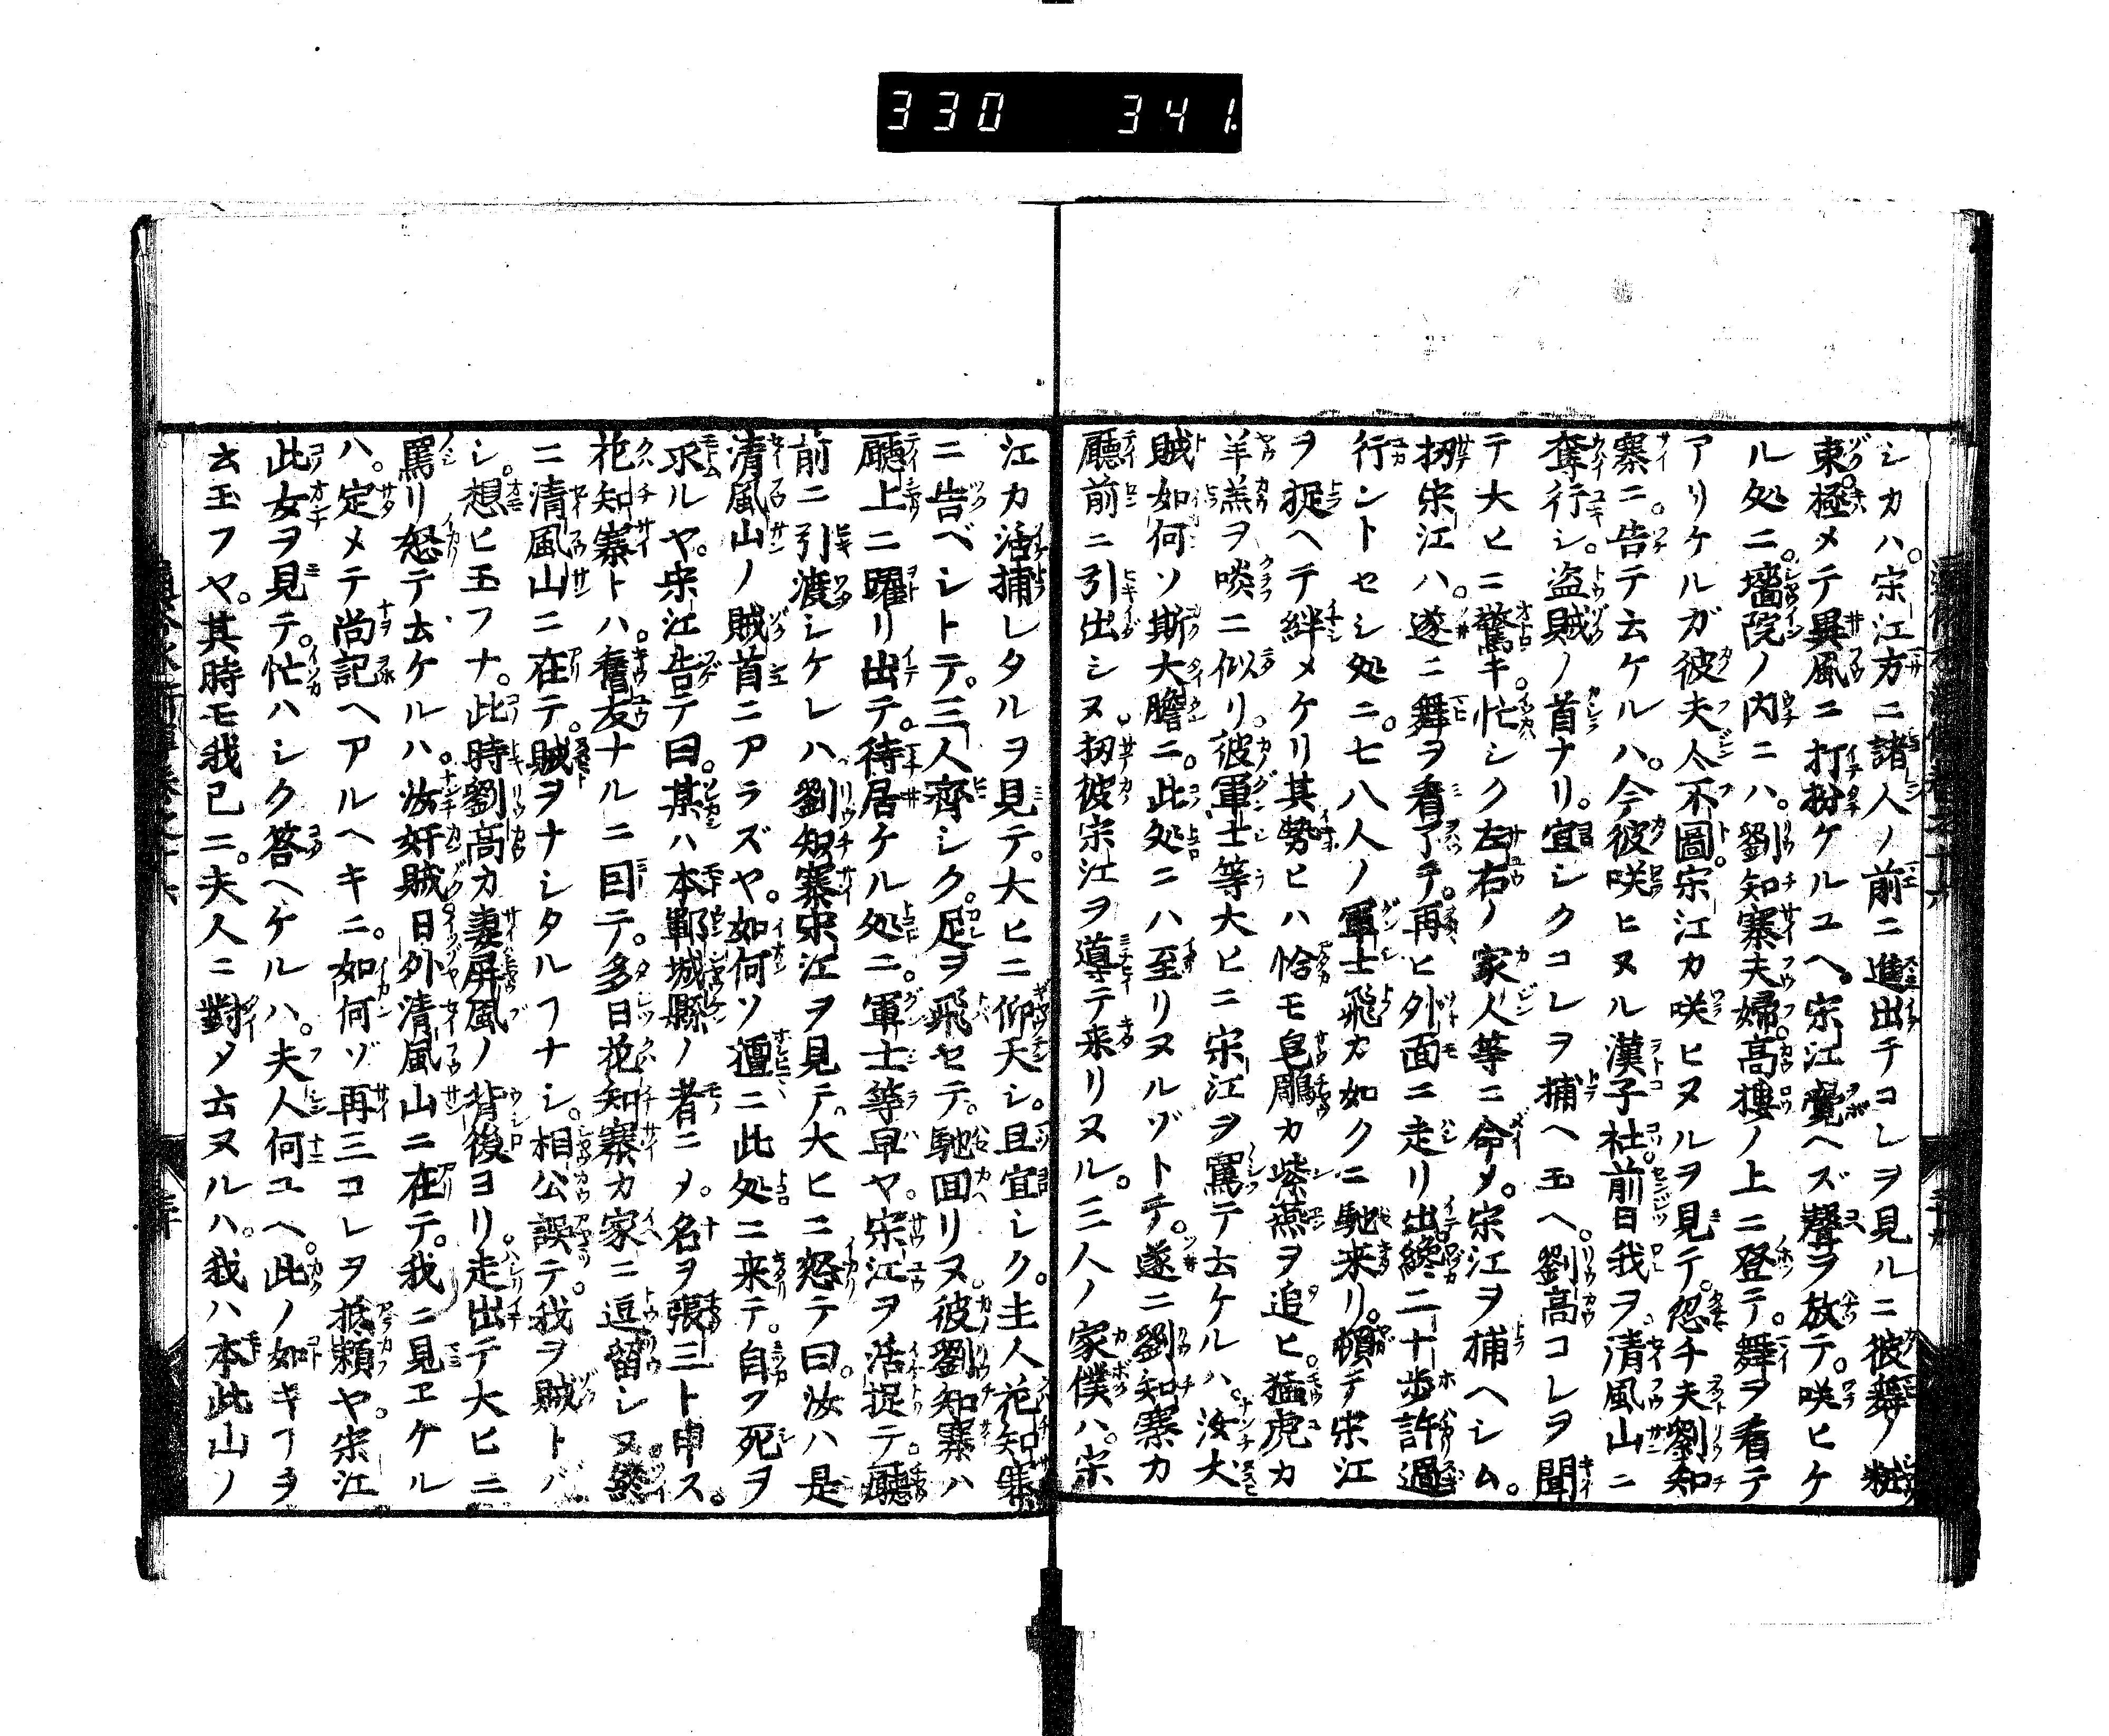 330 341.
シカハ。宋江方ニ諸人ノ前ニ進出チコレヲ見ルニ彼舞ノ粧
束。極メテ異風ニ打扮ケルユヘ。宋江覺ヘズ聲ヲ放テ。咲ヒケ
ル処ニ。墻院ノ内ニハ。劉知寨夫婦。高樓ノ上ニ登テ。舞ヲ看テ
アリケルガ彼夫人不圖。宋江カ咲ヒヌルヲ見テ。忽チ夫劉知
寨ニ。告テ云ケルハ。今彼咲ヒヌル漢子社。前日我ヲ。清風山ニ
奪行シ。盗賊ノ首ナリ。宜シクコレヲ捕ヘ玉ヘ。劉高コレヲ聞
テ大ヒニ驚キ。忙シク左右ノ家人等ニ命メ。宋江ヲ捕ヘシム。
扨宋江ハ。遂ニ舞ヲ看了チ。再ヒ外面ニ走リ出。纔二十歩許過
行ントセシ処ニ。七八人ノ軍士飛カ如クニ馳来リ。頓テ宋江
ヲ捉ヘテ絆メケリ其勢ヒハ恰モ皂鵰カ紫燕ヲ追ヒ。猛虎カ
羊羔ヲ啖ニ似リ。彼軍士等大ヒニ宋江ヲ罵テ云ケルハ。汝大
賊如何ソ斯大膽ニ。此処ニハ至リヌルゾトテ。遂ニ劉知寨カ
廳前ニ引出シヌ。扨彼宋江ヲ導テ来リヌル。三人ノ家僕ハ。宋
江カ活捕レタルヲ見テ。大ヒニ仰天シ。且宜シク。主人花知寨
ニ告ベシトテ。三人齊シク。足ヲ飛セテ。馳回リヌ。彼劉知寨ハ
廳上ニ躍リ出テ。待居ケル処ニ。軍士等早ヤ。宋江ヲ活捉テ。廳
前ニ引渡シケレハ劉知寨宋江ヲ見テ。大ヒニ怒テ曰。汝ハ是
清風山ノ賊首ニアラズヤ。如何ソ擅ニ此処ニ来テ。自フ死ヲ
求ルヤ。宋江告テ曰。某ハ本鄆城縣ノ者ニメ。名ヲ張三ト申ス。
花知寨トハ。舊友ナルニ因テ。多日花知寨カ家ニ逗留シヌ終
ニ清風山ニ在テ。賊ヲナシタルヿナシ。相公誤テ。我ヲ賊トバ
シ。想ヒ玉フナ。此時劉高カ妻屏風ノ背後ヨリ。走出テ大ヒニ
罵リ怒テ云ケルハ。汝奸賊。日外清風山ニ在テ。我ニ見ヱケル
ハ。定メテ尚記ヘアルヘキニ。如何ゾ再三コレヲ抵頼ヤ。宋江
此女ヲ見テ。忙ハシク答ヘケルハ。夫人何ユヘ。此ノ如キヿヲ
云玉フヤ。其時モ我已ニ。夫人ニ對タ云ヌルハ。我ハ本此山ノ